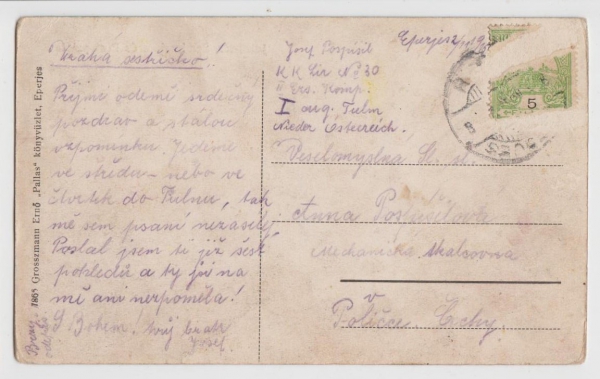 Drahá sestřičko!
Přijmi odemě srdečný
pozdrav a stálou
vzpomínku. Jedeme
ve středu nebo ve
čtvrtek do Tulnu, tak
mě sem psaní nezasílej.
Poslal jsem ti již šest
pohledů a ty jsi na
mě ani nezpoměla!
S Bohem! tvůj bratr
Josef.
1865 Grosszmann Ernő „Pallas" könyvüzlet, Eperjes
Josef Pospíšil
K K Lir No 30
II Ers. Komp.
I aug. Tulln
Nieder Österreich.
Eperjes
5
Veselomyslna Sl. sl.
Anna Pospíšilova
Mechanická tkalcovna
v
Poličce Čechy